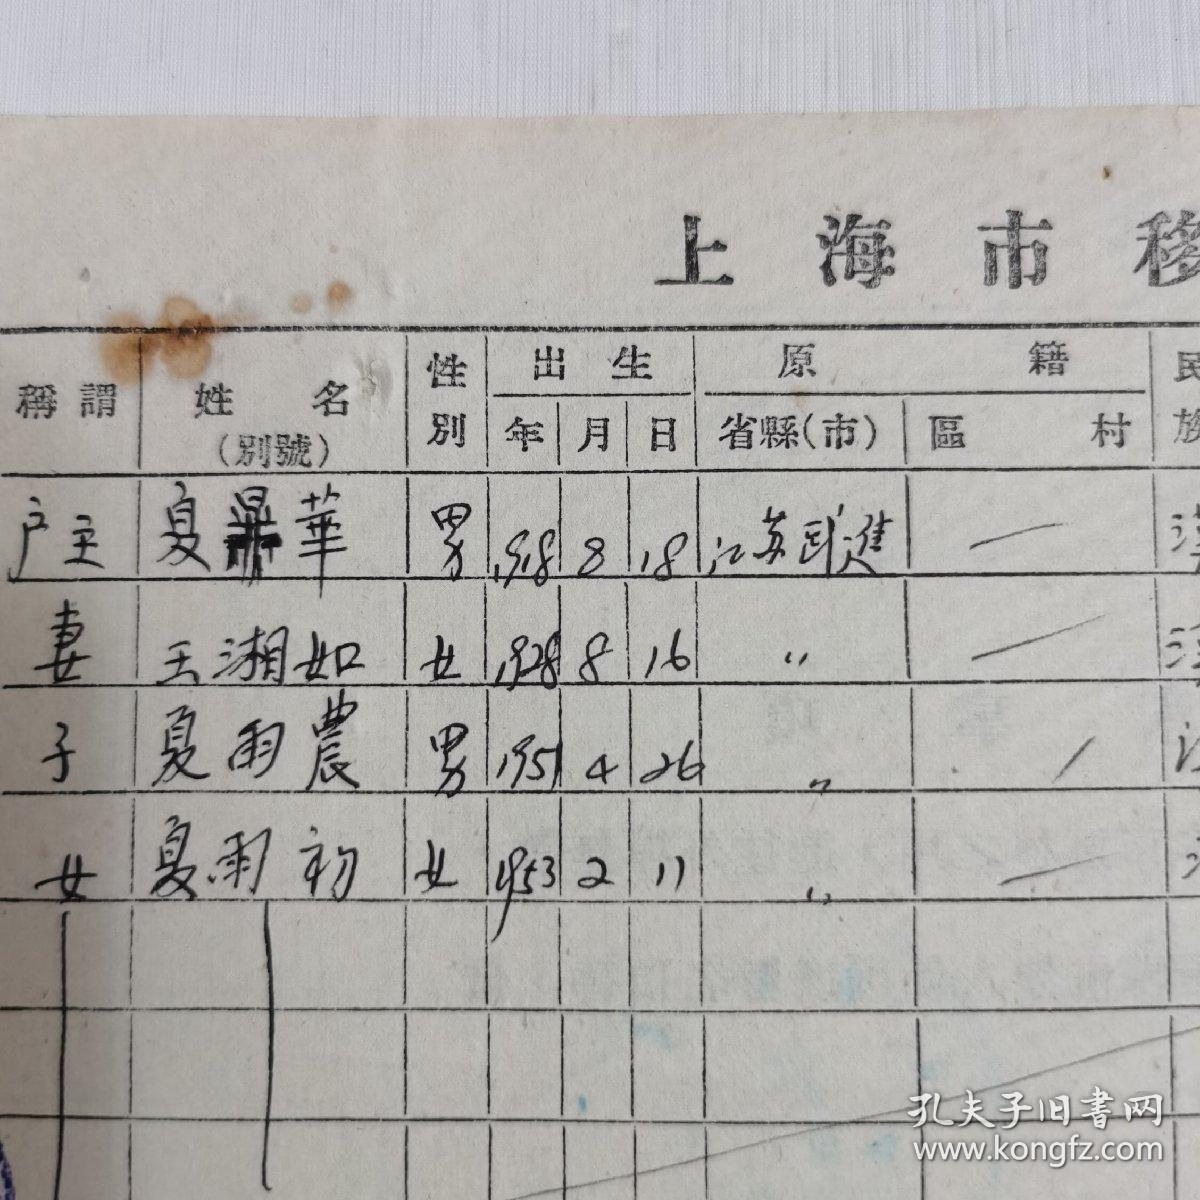 上海市移
稱謂 姓名 性別 出生 原籍 民族
(別號) 年 月 日 省縣(市) 區 村
户主 夏鼎華 男 1918 8 18 江苏武進 — 汉
妻 王湘如 女 1928 8 16 〃 —
子 夏雨農 男 1951 4 26 〃 —
女 夏雨初 女 1953 2 11 〃 —
孔夫子旧書网
www.kongfz.com